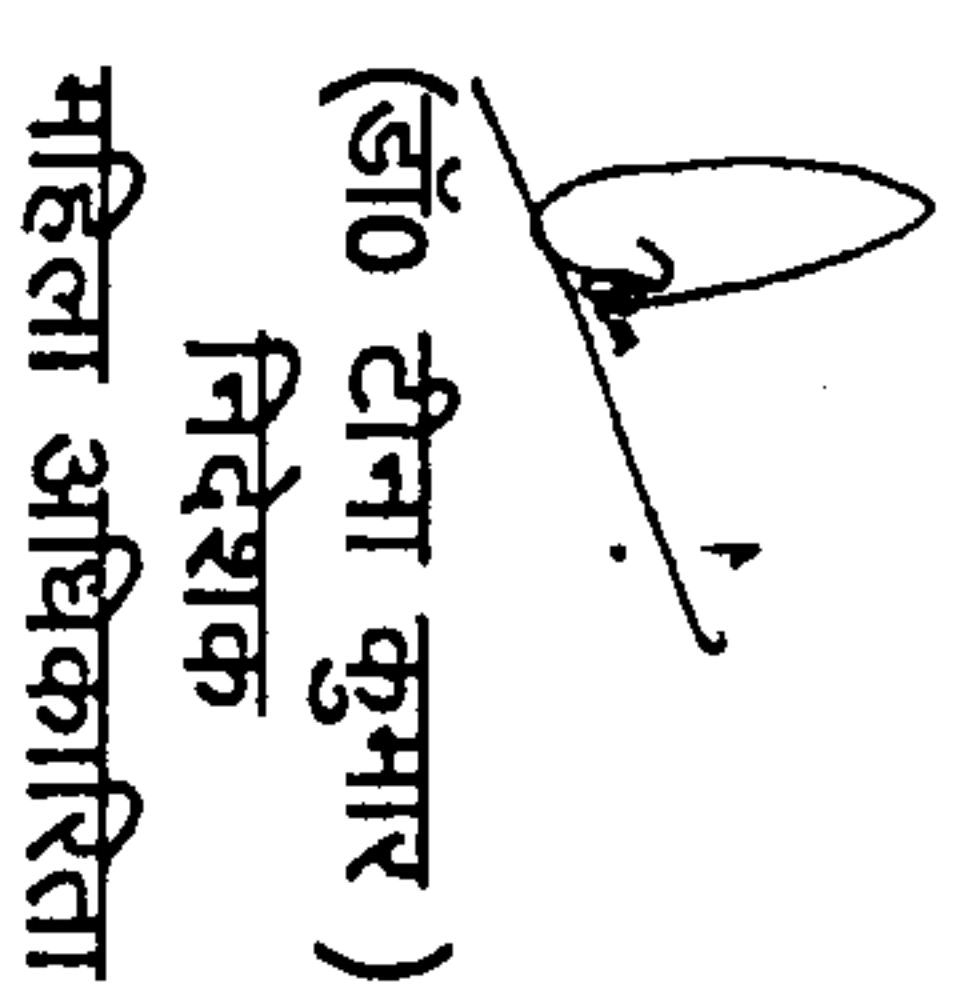 (डॉ0 टीना कुमार )
निदेशक
महिला अधिकारिता